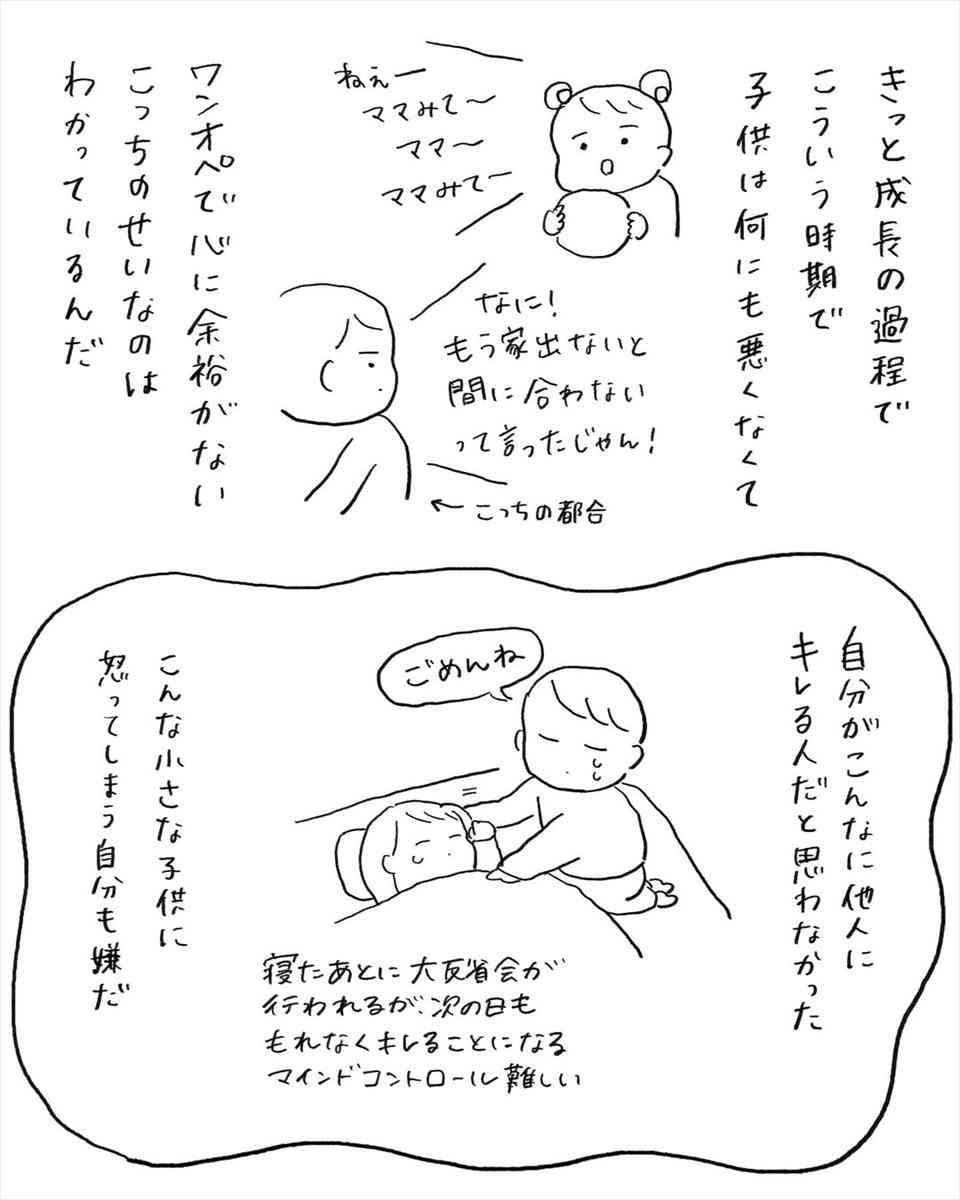 きっと成長の過程で
こういう時期で
子供は何にも悪くなくて
ねぇー
ママみて〜
ママ〜
ママみて〜
なに!
もう家出ないと
間に合わない
って言ったじゃん!
←こっちの都合
ワンオペで心に余裕がない
こっちのせいなのは
わかっているんだ
自分がこんなに他人に
キレる人だと思わなかった
ごめんね
寝たあとに大反省会が
行われるが、次の日も
もれなくキレることになる
マインドコントロール難しい
こんな小さな子供に
怒ってしまう自分も嫌だ